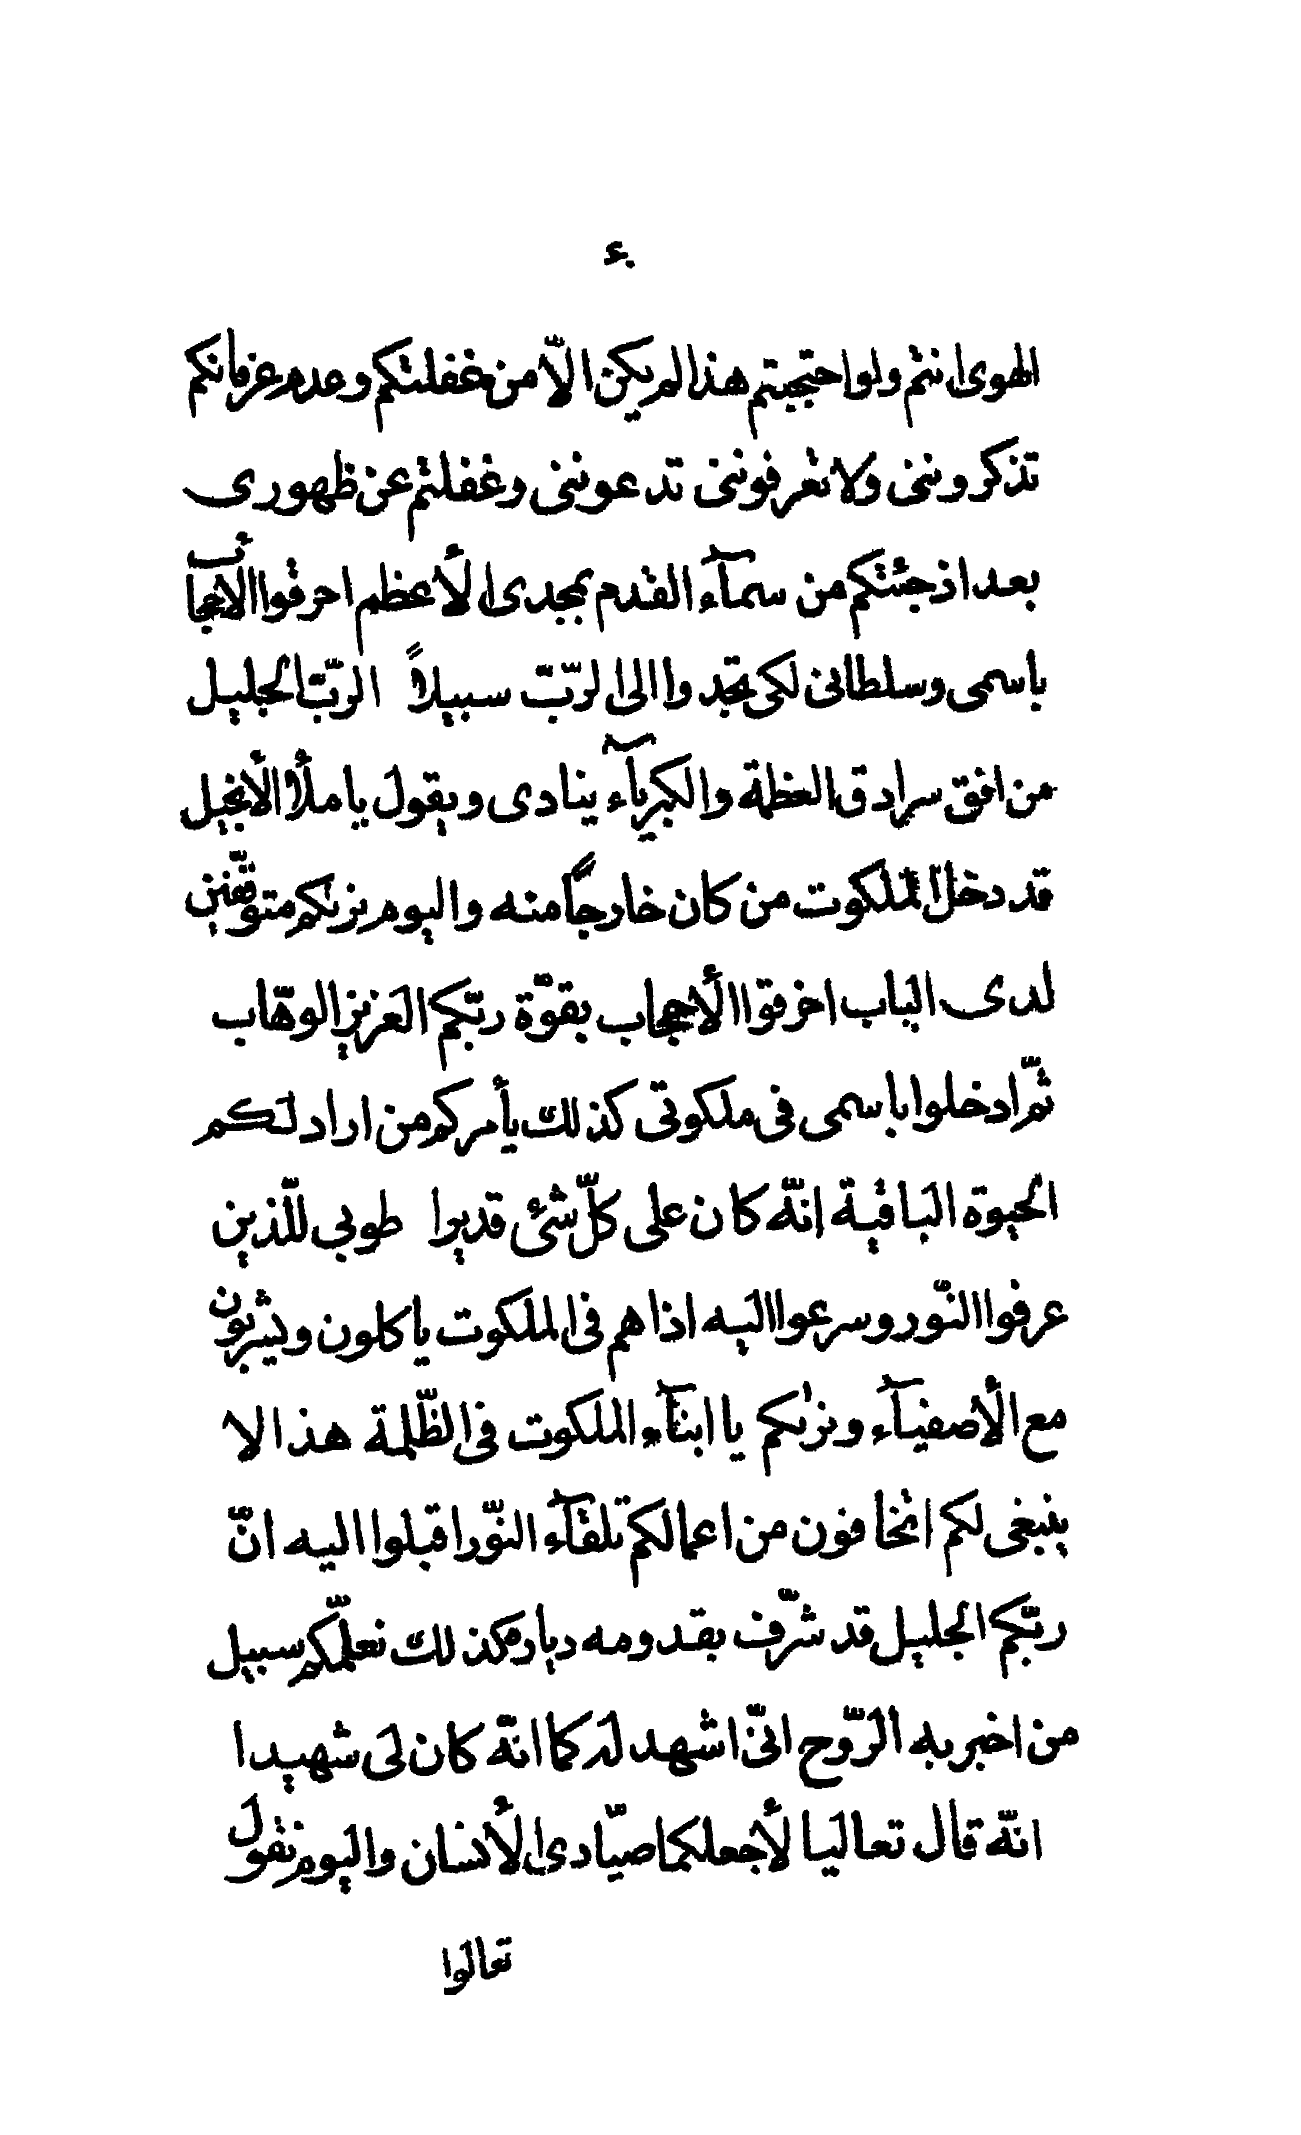 ٤٠
الهوی انتم ولوا حتجبتم هذا لم یکن الّا من غفلتکم و عدم عرفانکم
تذکروننی ولا تعرفوننی تدعوننی وغفلتم عن ظهوری
بعد اذ جئتکم من سمآء القدم بمجدی الأعظم احرقوا الأحجاب
باسمی وسلطانی لکی تجدوا الی الربّ سبیلاً الربّ الجلیل
من افق سرادق العظمة والکبریآء ینادی ویقول یا ملأ الأنجیل
قد دخل الملکوت من کان خارجًا منه والیوم نریٰکم متوقّفین
لدی الباب اخرقوا الأحجاب بقوّة ربّکم العزیز الوهّاب
ثمّ ادخلوا باسمی فی ملکوتی کذلك یأمرکم من اراد لکم
الحیوة الباقیة انّه کان علی کلّ شئ قدیرا طوبی للّذین
عرفوا النّور وسرعوا الیه اذا هم فی الملکوت یاکلون ویشربون
مع الأصفیآء ونریٰکم یا ابنآء الملکوت فی الظّلمة هذا لا
ینبغی لکم اتخافون من اعمالکم تلقآء النّور اقبلوا الیه انّ
ربّکم الجلیل قد شرّف بقدومه دیاره کذلك نعلّمکم سبیل
من اخبر به الرّوح انّی اشهد له کما انّه کان لی شهیدا
انّه قال تعالیا لأجعلکما صیّادی الأنسان والیوم نقول
تعالوا